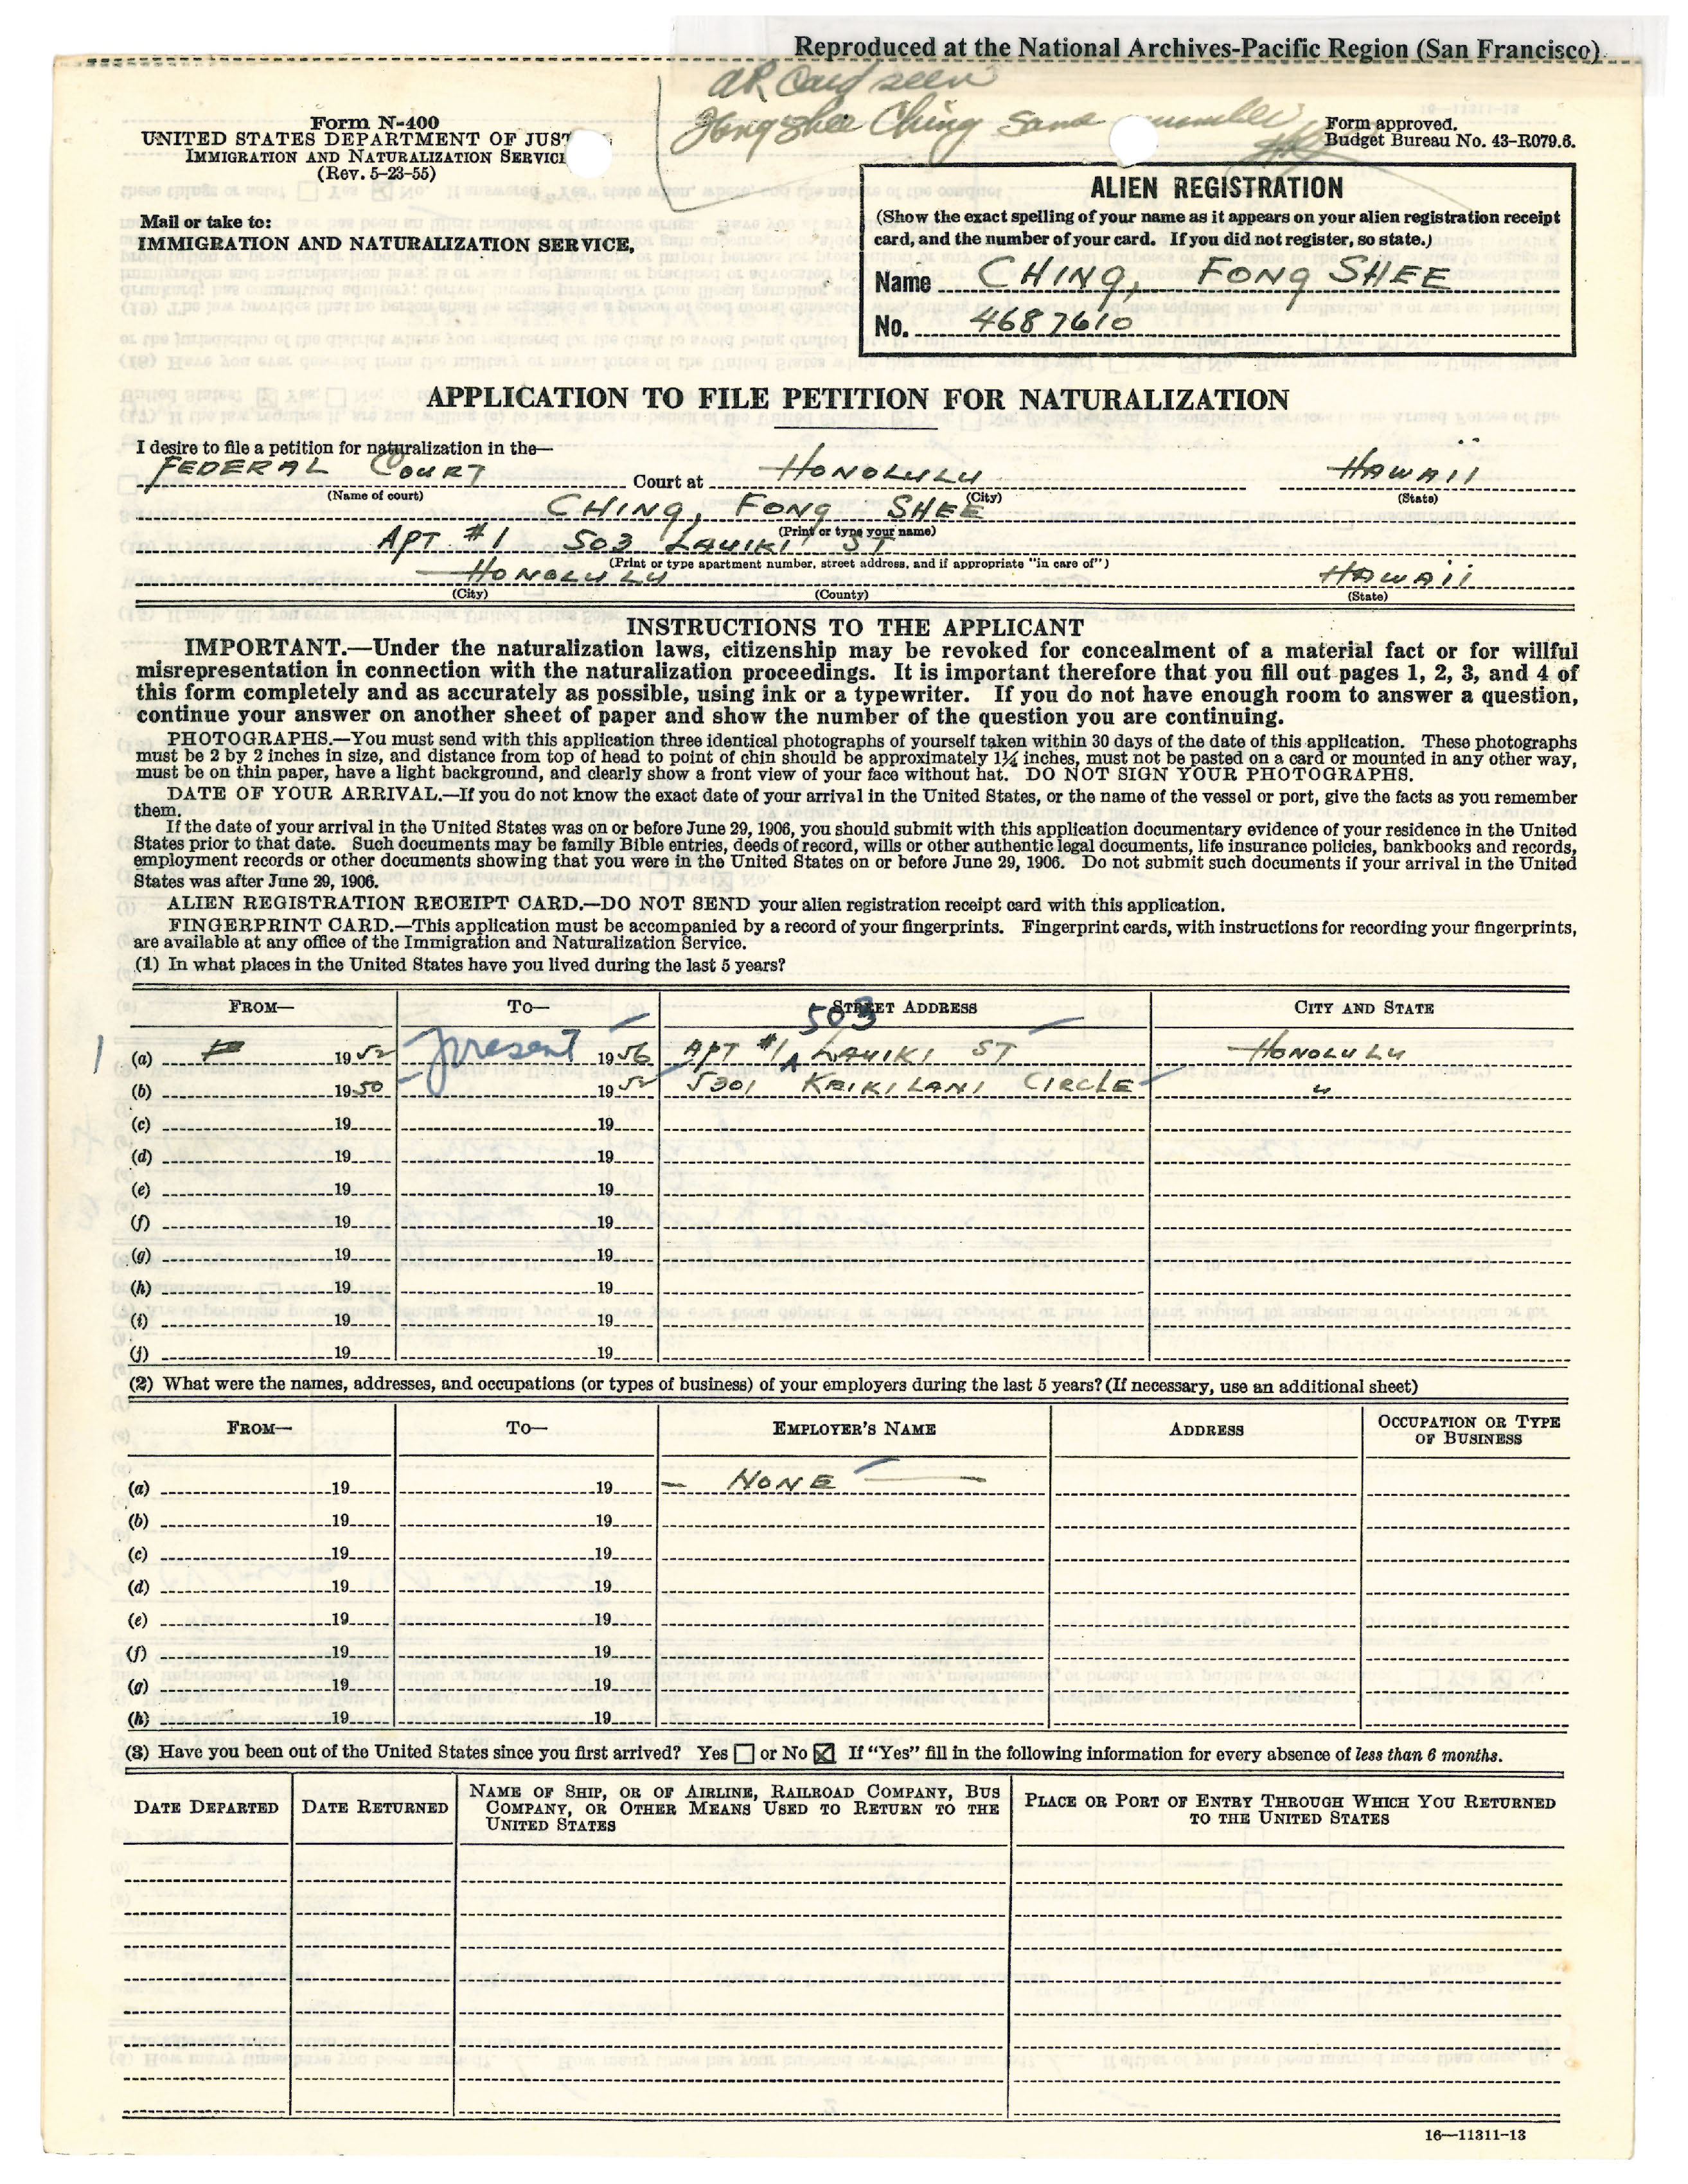 Reproduced at the National Archives-Pacific Region (San Francisco)
AR Card seen
Fong Shee Ching same number
Form N-400
UNITED STATES DEPARTMENT OF JUST
IMMIGRATION AND NATURALIZATION SERVICE
(Rev. 5-23-55)
Form approved.
Budget Bureau No. 43-R079.6.
Mail or take to:
IMMIGRATION AND NATURALIZATION SERVICE,
ALIEN REGISTRATION
(Show the exact spelling of your name as it appears on your alien registration receipt
card, and the number of your card. If you did not register, so state.)
Name CHING, FONG SHEE
No. 4687610
APPLICATION TO FILE PETITION FOR NATURALIZATION
I desire to file a petition for naturalization in the—
FEDERAL COURT Court at HONOLULU HAWAII
(Name of court) (City) (State)
CHING, FONG SHEE
(Print or type your name)
APT #1 503 LAUIKI ST
(Print or type apartment number, street address, and if appropriate "in care of")
HONOLULU HAWAII
(City) (County) (State)
INSTRUCTIONS TO THE APPLICANT
IMPORTANT.—Under the naturalization laws, citizenship may be revoked for concealment of a material fact or for willful
misrepresentation in connection with the naturalization proceedings. It is important therefore that you fill out pages 1, 2, 3, and 4 of
this form completely and as accurately as possible, using ink or a typewriter. If you do not have enough room to answer a question,
continue your answer on another sheet of paper and show the number of the question you are continuing.
PHOTOGRAPHS.—You must send with this application three identical photographs of yourself taken within 30 days of the date of this application. These photographs
must be 2 by 2 inches in size, and distance from top of head to point of chin should be approximately 1¼ inches, must not be pasted on a card or mounted in any other way,
must be on thin paper, have a light background, and clearly show a front view of your face without hat. DO NOT SIGN YOUR PHOTOGRAPHS.
DATE OF YOUR ARRIVAL.—If you do not know the exact date of your arrival in the United States, or the name of the vessel or port, give the facts as you remember
them.
If the date of your arrival in the United States was on or before June 29, 1906, you should submit with this application documentary evidence of your residence in the United
States prior to that date. Such documents may be family Bible entries, deeds of record, wills or other authentic legal documents, life insurance policies, bankbooks and records,
employment records or other documents showing that you were in the United States on or before June 29, 1906. Do not submit such documents if your arrival in the United
States was after June 29, 1906.
ALIEN REGISTRATION RECEIPT CARD.—DO NOT SEND your alien registration receipt card with this application.
FINGERPRINT CARD.—This application must be accompanied by a record of your fingerprints. Fingerprint cards, with instructions for recording your fingerprints,
are available at any office of the Immigration and Naturalization Service.
(1) In what places in the United States have you lived during the last 5 years?
FROM— TO— STREET ADDRESS CITY AND STATE
503
(a) 1952 present 1956 APT #1 LAUIKI ST HONOLULU
(b) 1950 1952 5301 KRIKILANI CIRCLE "
(c) 19 19
(d) 19 19
(e) 19 19
(f) 19 19
(g) 19 19
(h) 19 19
(i) 19 19
(j) 19 19
(2) What were the names, addresses, and occupations (or types of business) of your employers during the last 5 years? (If necessary, use an additional sheet)
FROM— TO— EMPLOYER'S NAME ADDRESS OCCUPATION OR TYPE
OF BUSINESS
(a) 19 19 — NONE —
(b) 19 19
(c) 19 19
(d) 19 19
(e) 19 19
(f) 19 19
(g) 19 19
(h) 19 19
(3) Have you been out of the United States since you first arrived? Yes ☐ or No ☒ If "Yes" fill in the following information for every absence of less than 6 months.
DATE DEPARTED DATE RETURNED NAME OF SHIP, OR OF AIRLINE, RAILROAD COMPANY, BUS
COMPANY, OR OTHER MEANS USED TO RETURN TO THE
UNITED STATES
PLACE OR PORT OF ENTRY THROUGH WHICH YOU RETURNED
TO THE UNITED STATES
16—11311-13